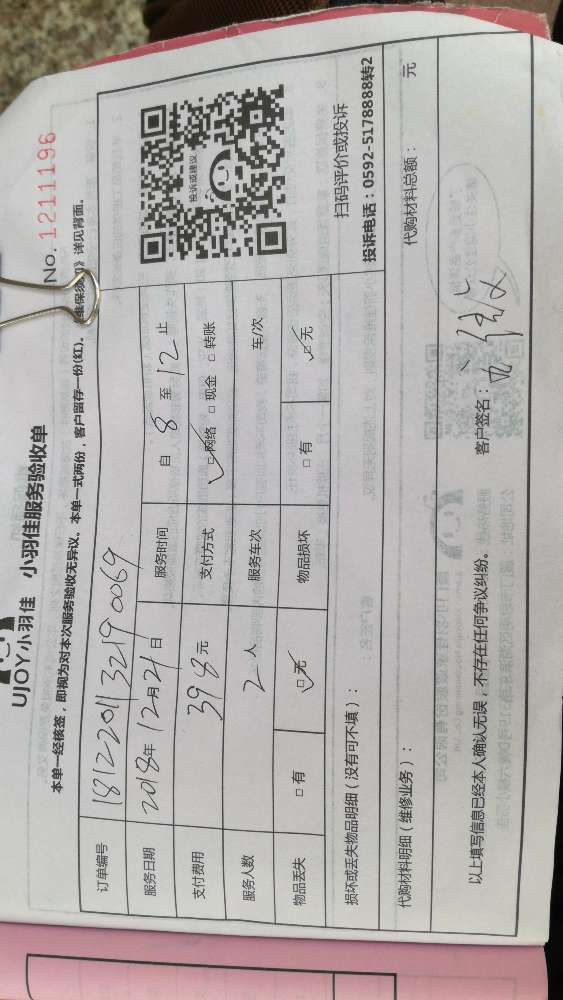 No. 1211196
UJOY小羽佳 小羽佳服务验收单
本单一经核签，即视为对本次服务验收无异议。本单一式两份，客户留存一份(红)。《维保须知》详见背面。
订单编号 181220113219 0069
服务日期 2018年12月21日 服务时间 自 8 至 12 止
支付费用 398 元 支付方式 ☑网络 □现金 □转账
服务人数 2 人 服务车次 车/次
物品丢失 □有 ☑无 物品损坏 □有 ☑无
投诉或建议
扫码评价或投诉
投诉电话：0592-5178888转2
损坏或丢失物品明细（没有可不填）：
代购材料明细（维修业务）： 代购材料总额： 元
以上填写信息已经本人确认无误，不存在任何争议纠纷。 客户签名：